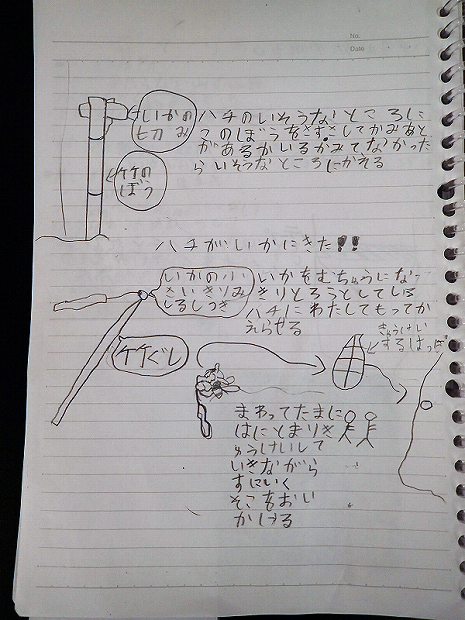 No.
Date
いかの
切み
ハチのいそうなところに
このぼうをさしてかみあと
があるかいるかみてなかった
らいそうなところにかえる
竹の
ぼう
ハチがいかにきた!!
いかの小
さいきりみ
しるしつき
いかをむちゅうになっ
きりとろうとしてしる
ハチにわたしてもってか
えらせる
竹ぐし
きゅうけい
するはっぱ
まわってたまに
はにとまりき
ゅうけいして
いきながら
すにいく
そこをおい
かける